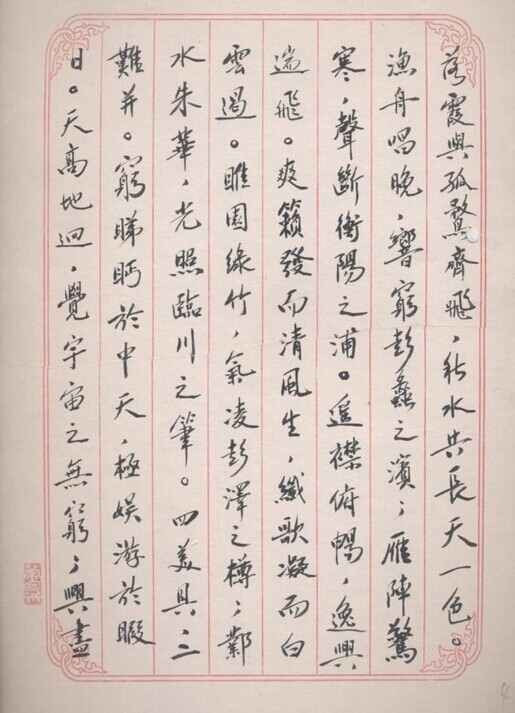 落霞與孤鶩齊飛，秋水共長天一色。
漁舟唱晚，響窮彭蠡之濱；雁陣驚
寒，聲斷衡陽之浦。遥襟俯暢，逸興
遄飛。爽籟發而清風生，纖歌凝而白
雲遏。睢園綠竹，氣凌彭澤之樽；鄴
水朱華，光照臨川之筆。四美具，二
難并。窮睇眄於中天，極娱游於暇
日。天高地迥，覺宇宙之無窮；興盡